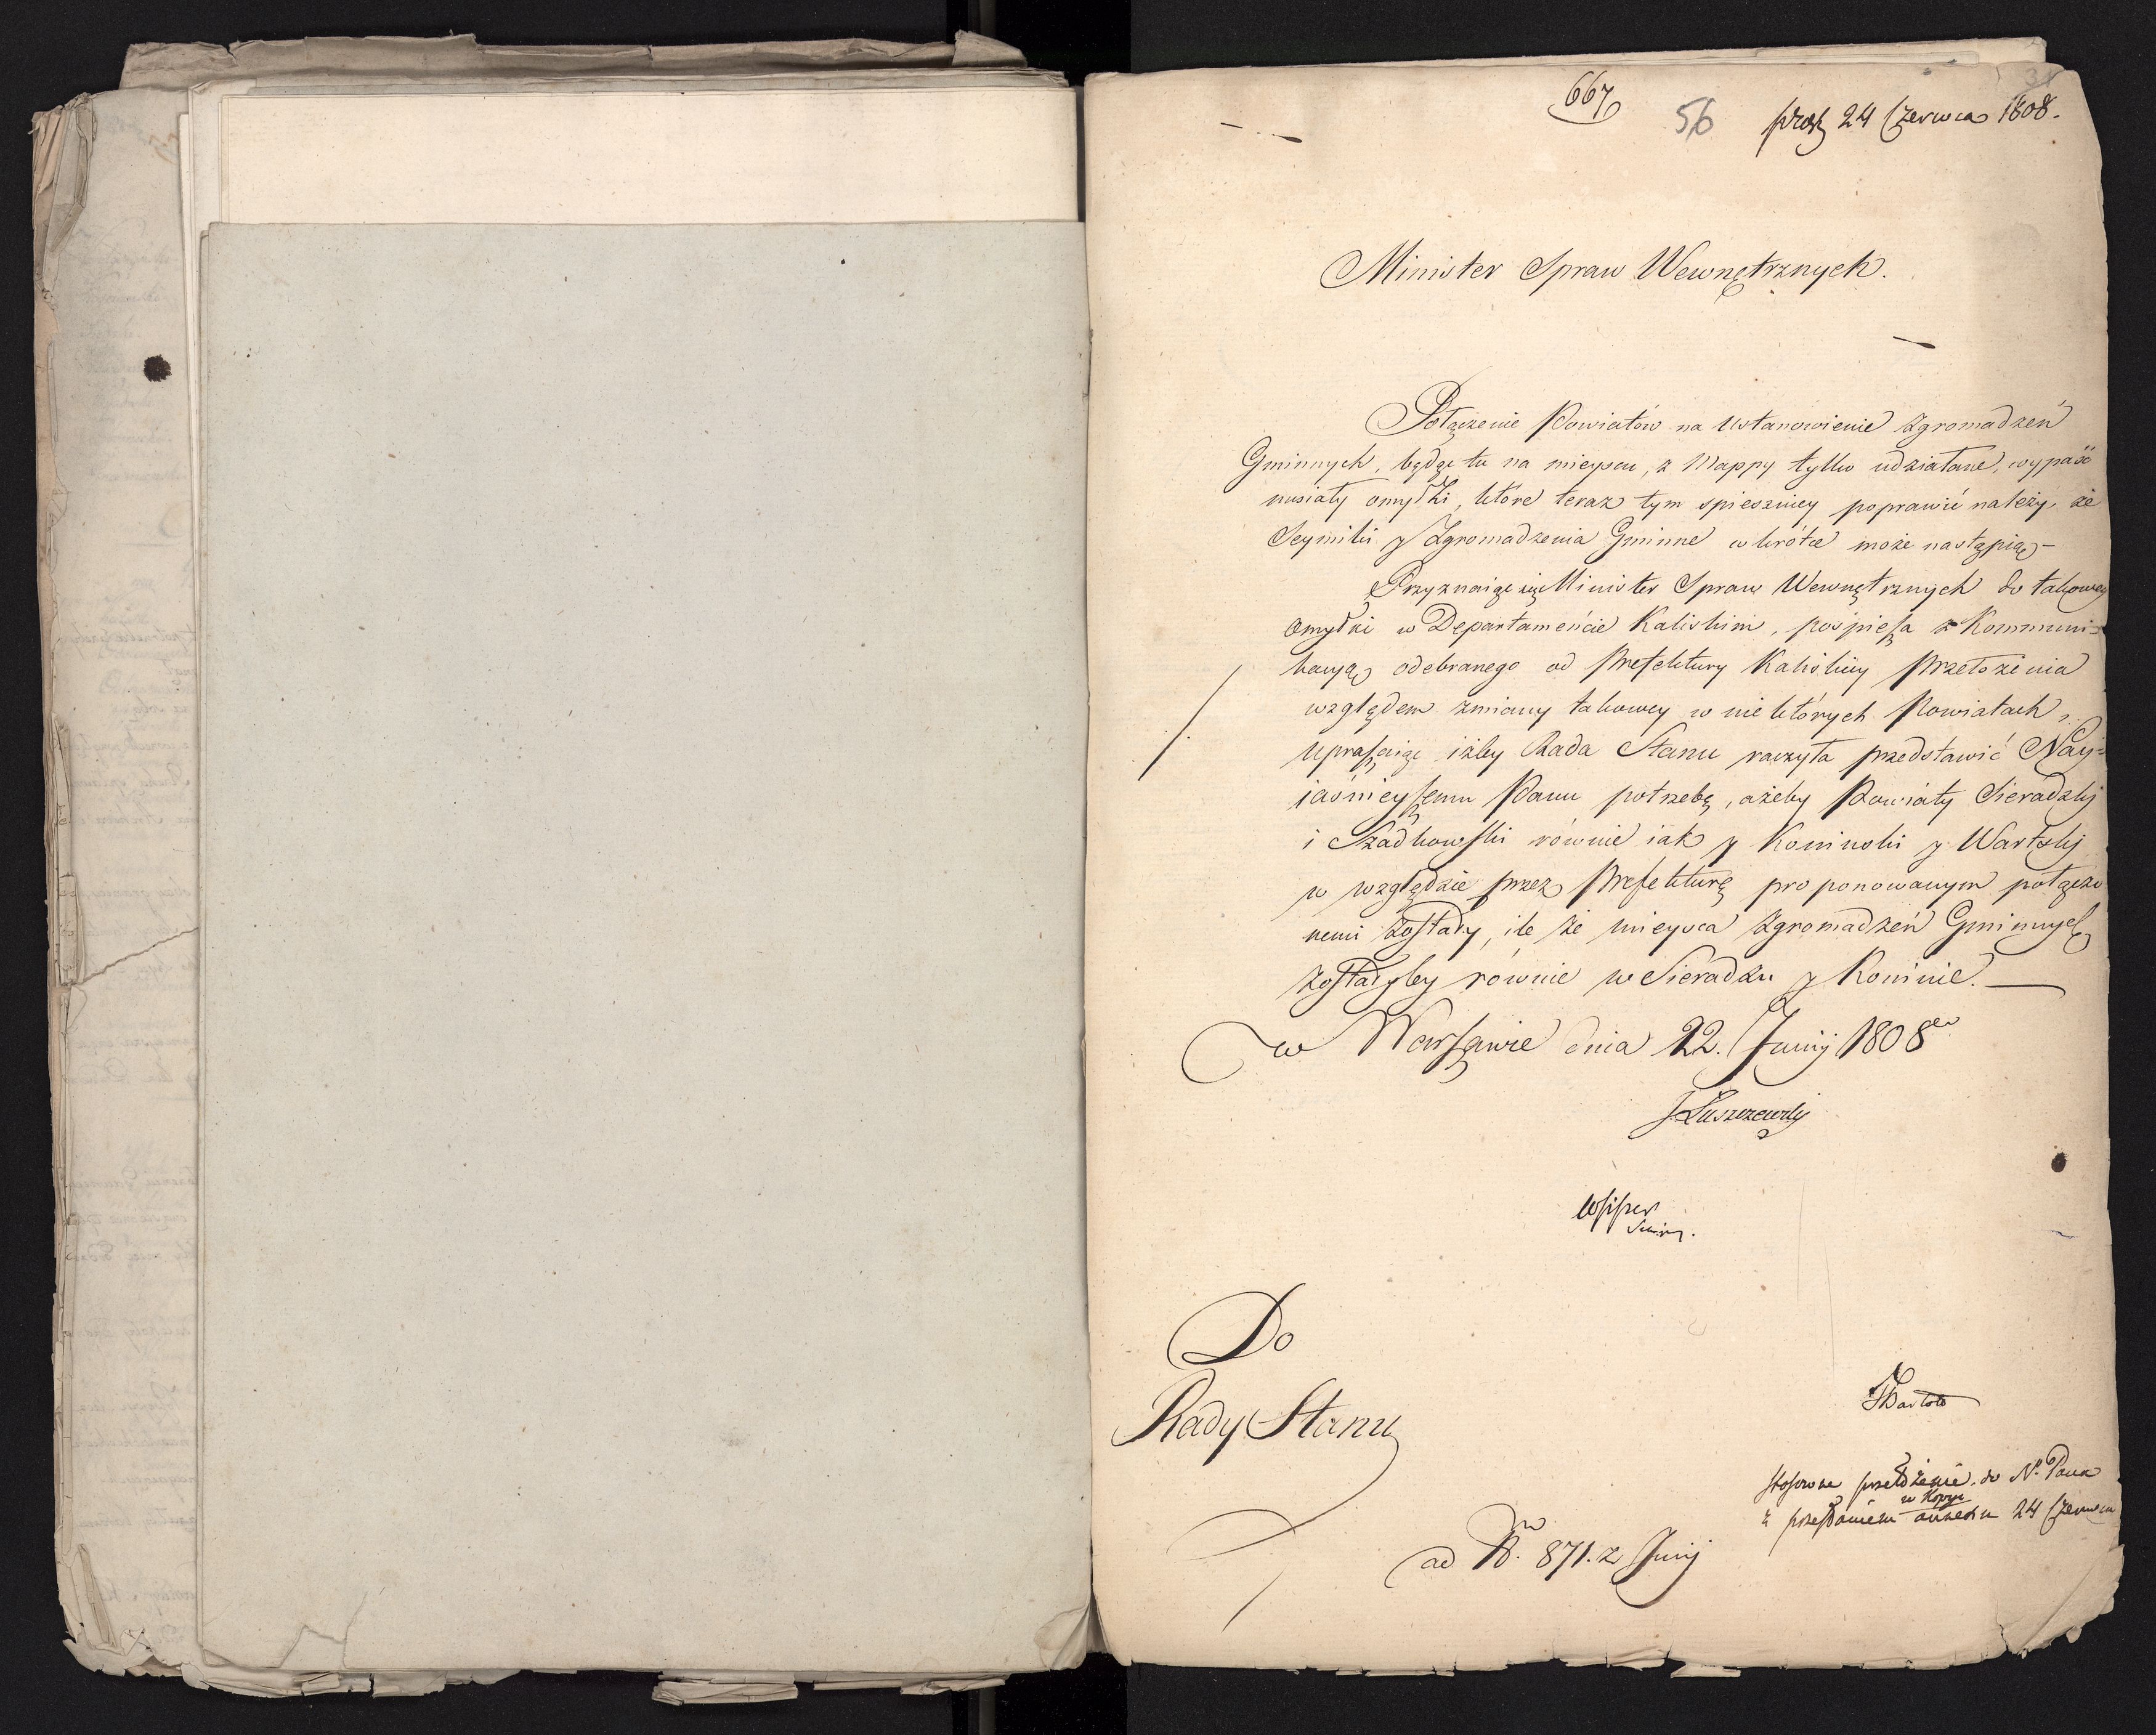 667
56
34
prez 24 Czerwca 1808.
Minister Spraw Wewnętrznych.
Połączenie Powiatów na Ustanowienie Zgromadzeń
Gminnych, będąc tu na mieyscu, z Mappy tylko udziałane, wypaść
musiały omyłki, które teraz tym spieszniey poprawić należy, że
Seymiki y Zgromadzenia Gminne wkrótce może nastąpią –
Przyznaiąc się Minister Spraw Wewnętrznych do takowey
omyłki w Departamencie Kaliskim, pośpiesza z Kommuni=
kacyą odebranego od Prefektury Kaliskiey Przełożenia
względem zmiany takowey w niektórych Powiatach,
upraszaiąc iżby Rada Stanu raczyła przedstawić Nay=
iaśnieyszemu Panu potrzebę, ażeby Powiaty Sieradzki
i Szadkowski równie iak y Koninski y Wartski
w względzie przez Prefekturę proponowanym połączo
nemi zostały, ile że mieysca Zgromadzeń Gminnych
zostałyby równie w Sieradzu y Koninie. —
w Warszawie dnia 22. Junij 1808
JŁuszczewski
Do
Rady Stanu
ad N. 871. z Junij
Stosowne przełożenie do N. Pana
w Kopyi
z przesłaniem annexu 24 Czerwca